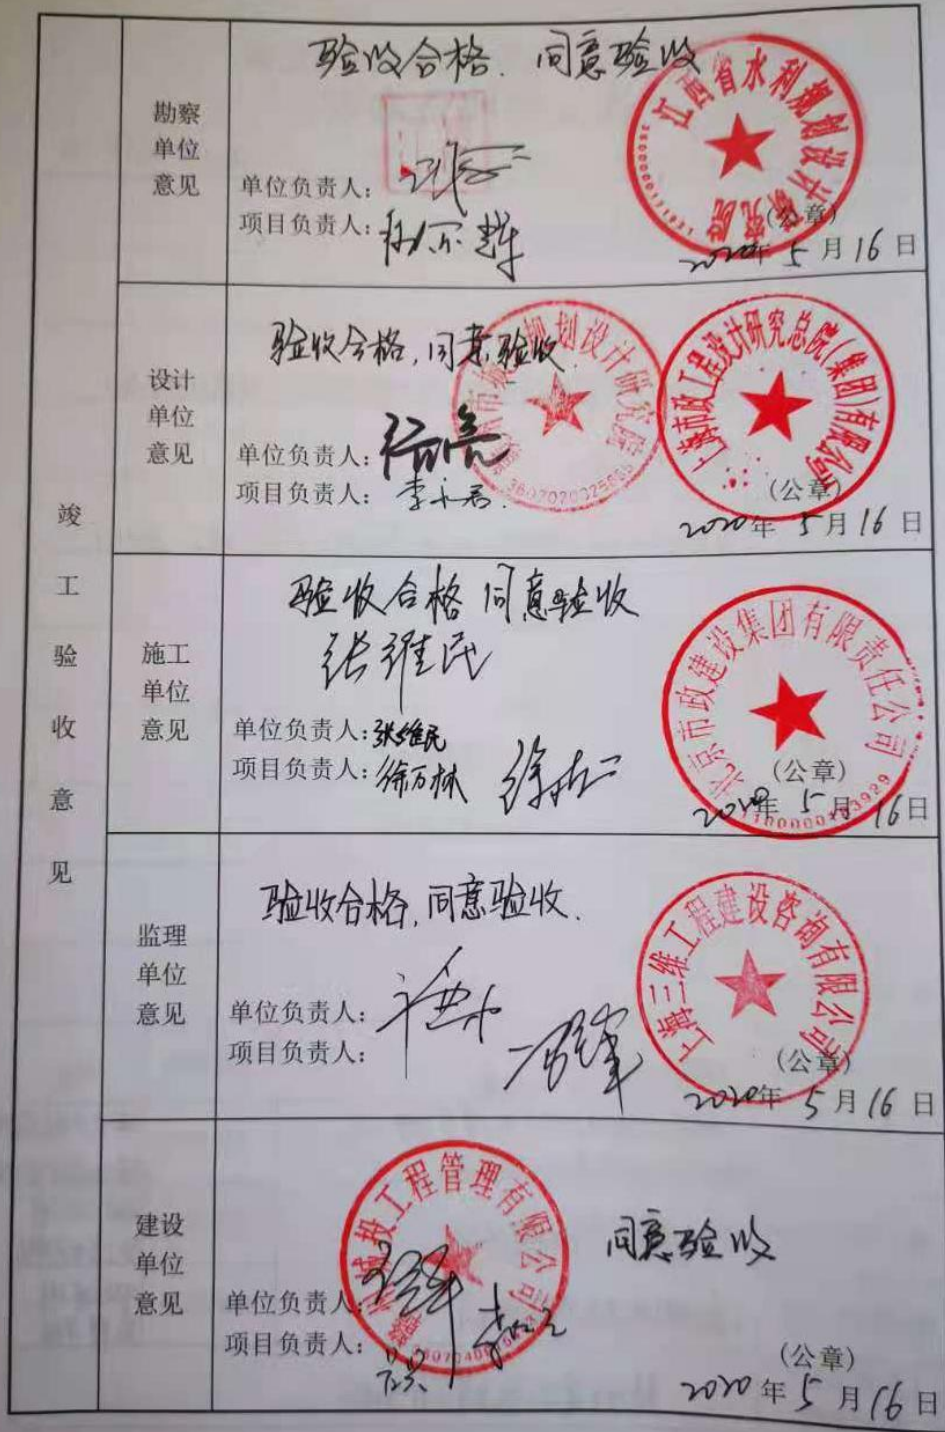 竣工验收意见
勘察单位意见
验收合格.同意验收
单位负责人:
项目负责人:
江西省水利规划设计研究院
(公章)
2020年5月16日
设计单位意见
验收合格,同意验收
单位负责人:
项目负责人:
规划设计研究院
3607020025855
上海市政工程设计研究总院(集团)有限公司
(公章)
2020年5月16日
施工单位意见
验收合格 同意验收
张维民
单位负责人:张维民
项目负责人:徐万林
北京市政建设集团有限责任公司
(公章)
2020年5月16日
监理单位意见
验收合格,同意验收.
单位负责人:
项目负责人:
上海三维工程建设咨询有限公司
(公章)
2020年5月16日
建设单位意见
城投工程管理有限公司
同意验收
单位负责人:
项目负责人:
(公章)
2020年5月16日